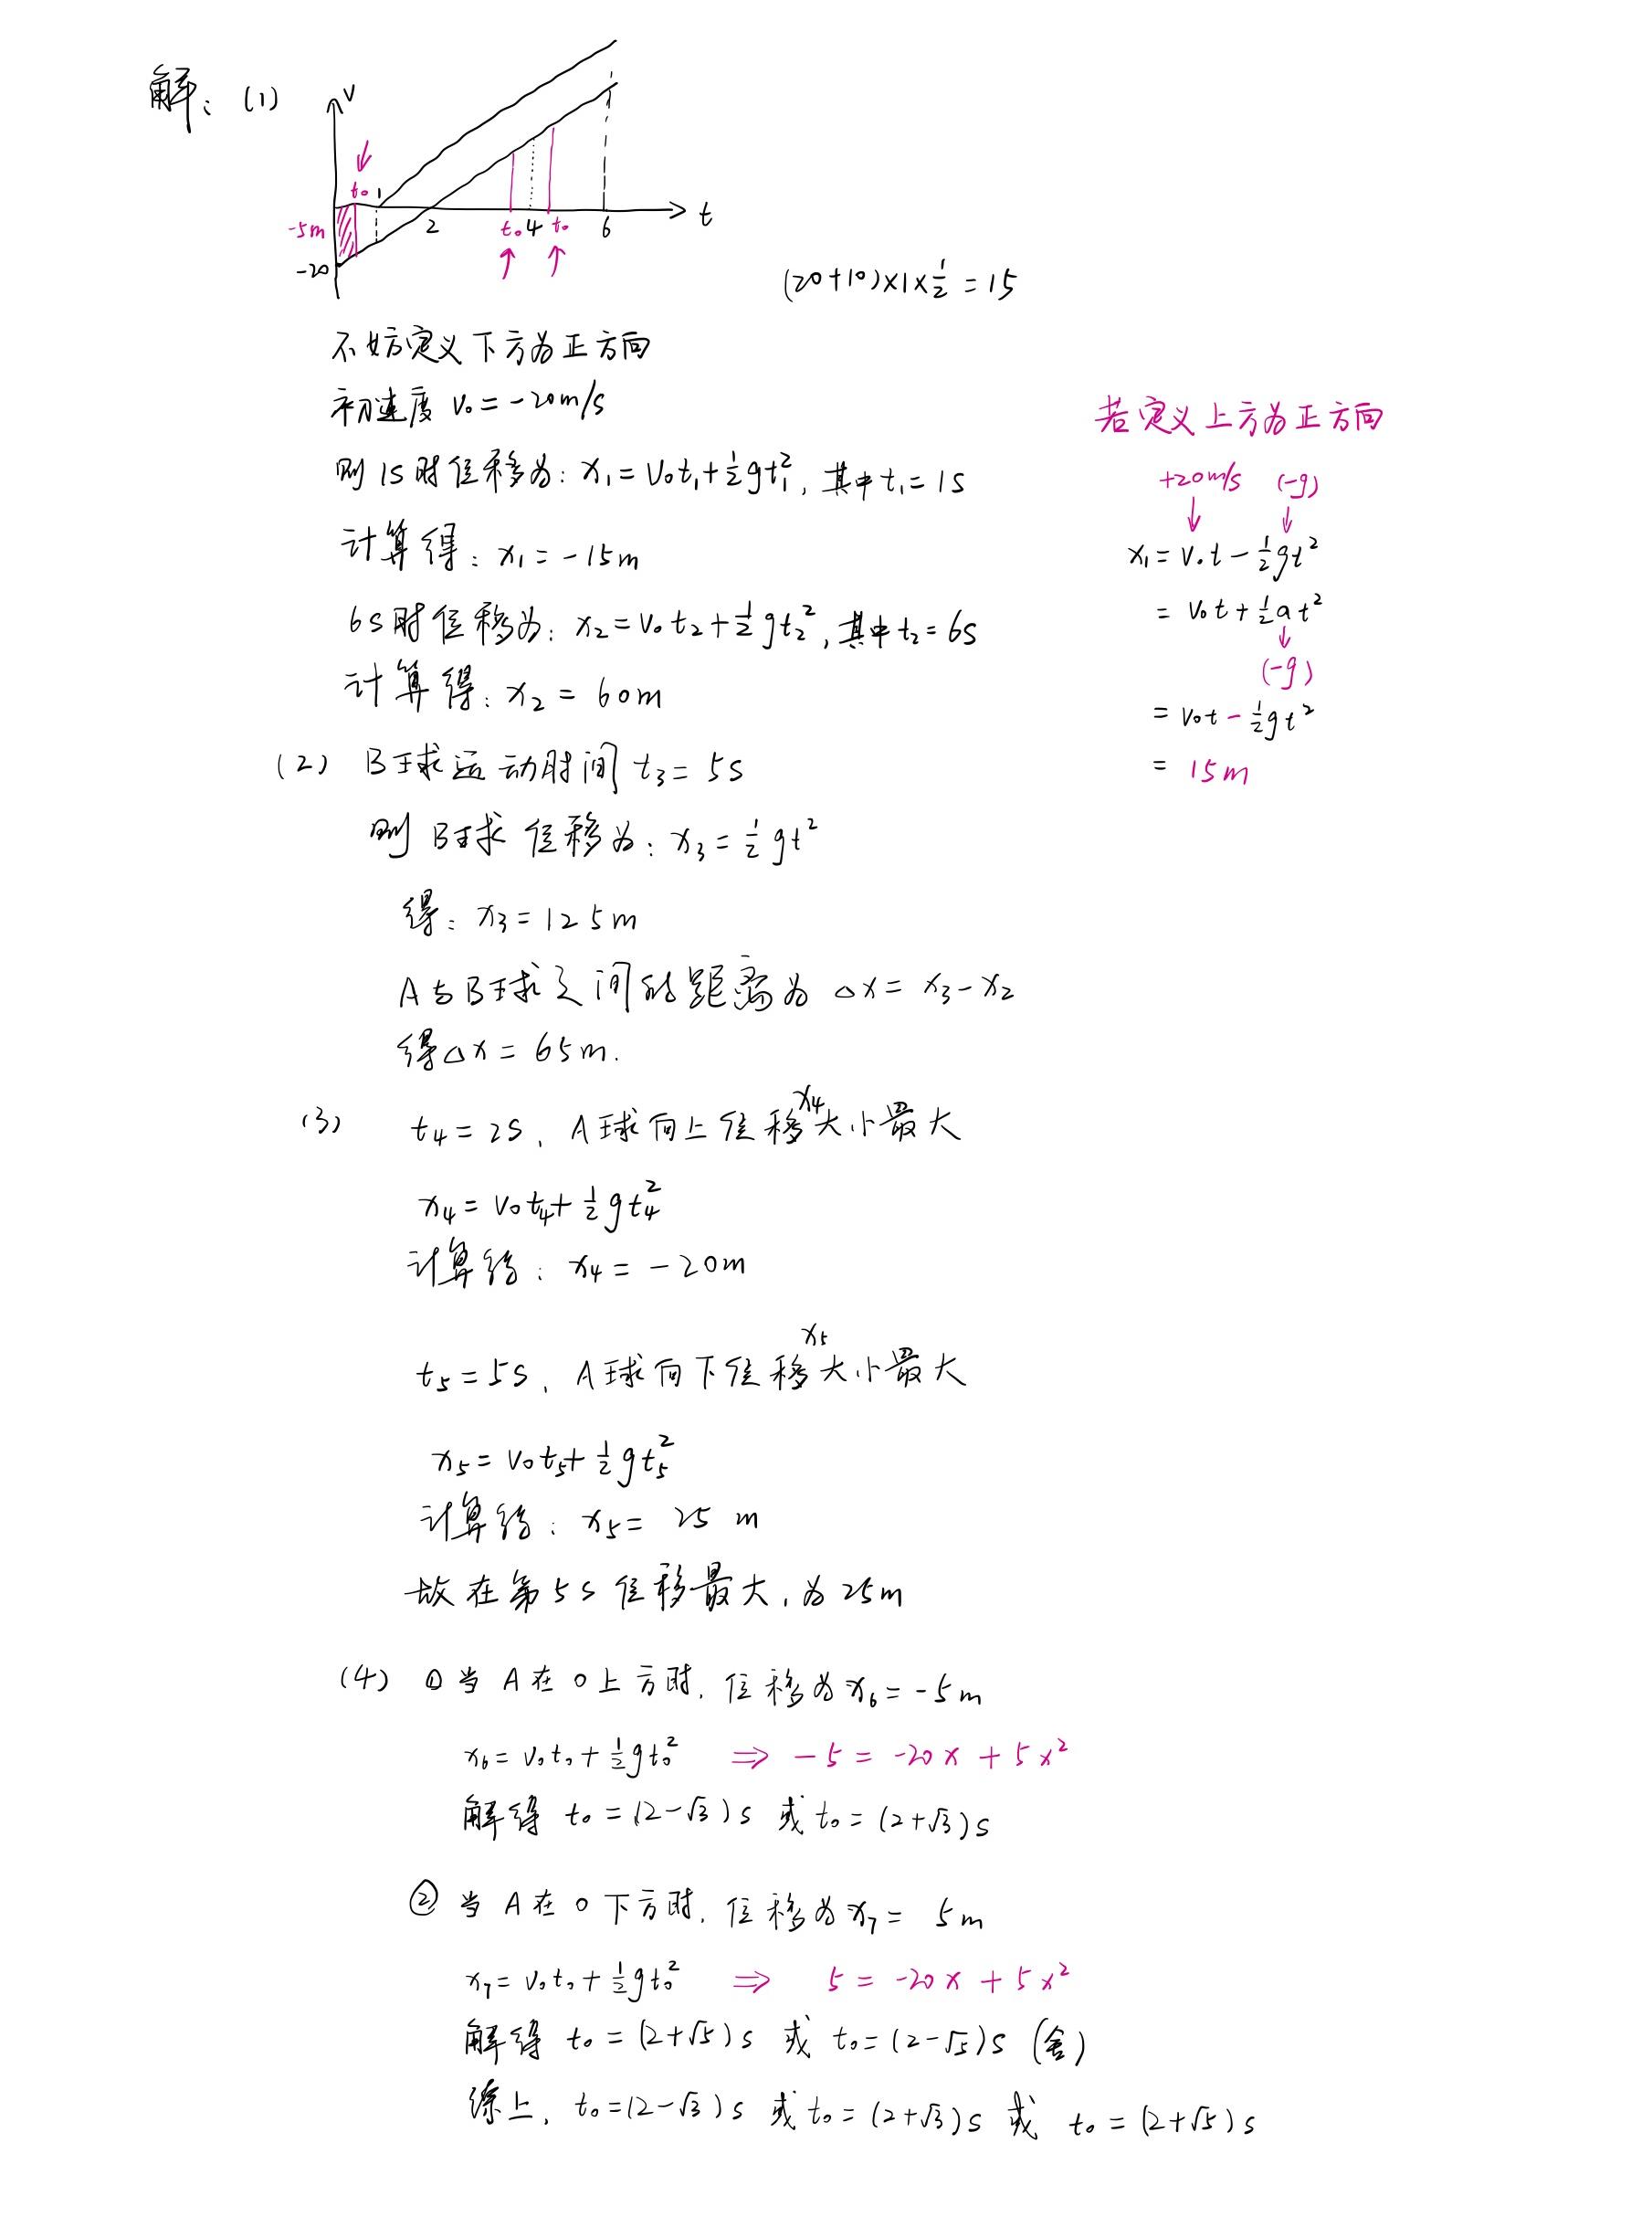 解：(1)
v
t₀ 1
-5m
2 t₀ 4 t₀ 6 t
-20
(20+10)×1×½ = 15
不妨定义下方为正方向
初速度 v₀ = -20m/s
则 1s 时位移为: x₁ = v₀t₁ + ½gt₁², 其中 t₁ = 1s
计算得: x₁ = -15m
6s时位移为: x₂ = v₀t₂ + ½gt₂², 其中 t₂ = 6s
计算得: x₂ = 60m
若定义上方为正方向
+20m/s (-g)
x₁ = v₀t - ½gt²
= v₀t + ½at²
(-g)
= v₀t - ½gt²
= 15m
(2) B球运动时间 t₃ = 5s
则 B球位移为: x₃ = ½gt²
得: x₃ = 125m
A与B球之间的距离为 △x = x₃ - x₂
得△x = 65m.
(3) t₄ = 2s, A球向上位移x₄大小最大
x₄ = v₀t₄ + ½gt₄²
计算得: x₄ = -20m
t₅ = 5s, A球向下位移x₅大小最大
x₅ = v₀t₅ + ½gt₅²
计算得: x₅ = 25 m
故在第5s位移最大, 为25m
(4) ① 当 A 在 O 上方时, 位移为 x₆ = -5m
x₆ = v₀t₀ + ½gt₀² ⇒ -5 = -20x + 5x²
解得 t₀ = (2-√3)s 或 t₀ = (2+√3)s
② 当 A 在 O 下方时, 位移为 x₇ = 5m
x₇ = v₀t₀ + ½gt₀² ⇒ 5 = -20x + 5x²
解得 t₀ = (2+√5)s 或 t₀ = (2-√5)s (舍)
综上, t₀ = (2-√3)s 或 t₀ = (2+√3)s 或 t₀ = (2+√5)s